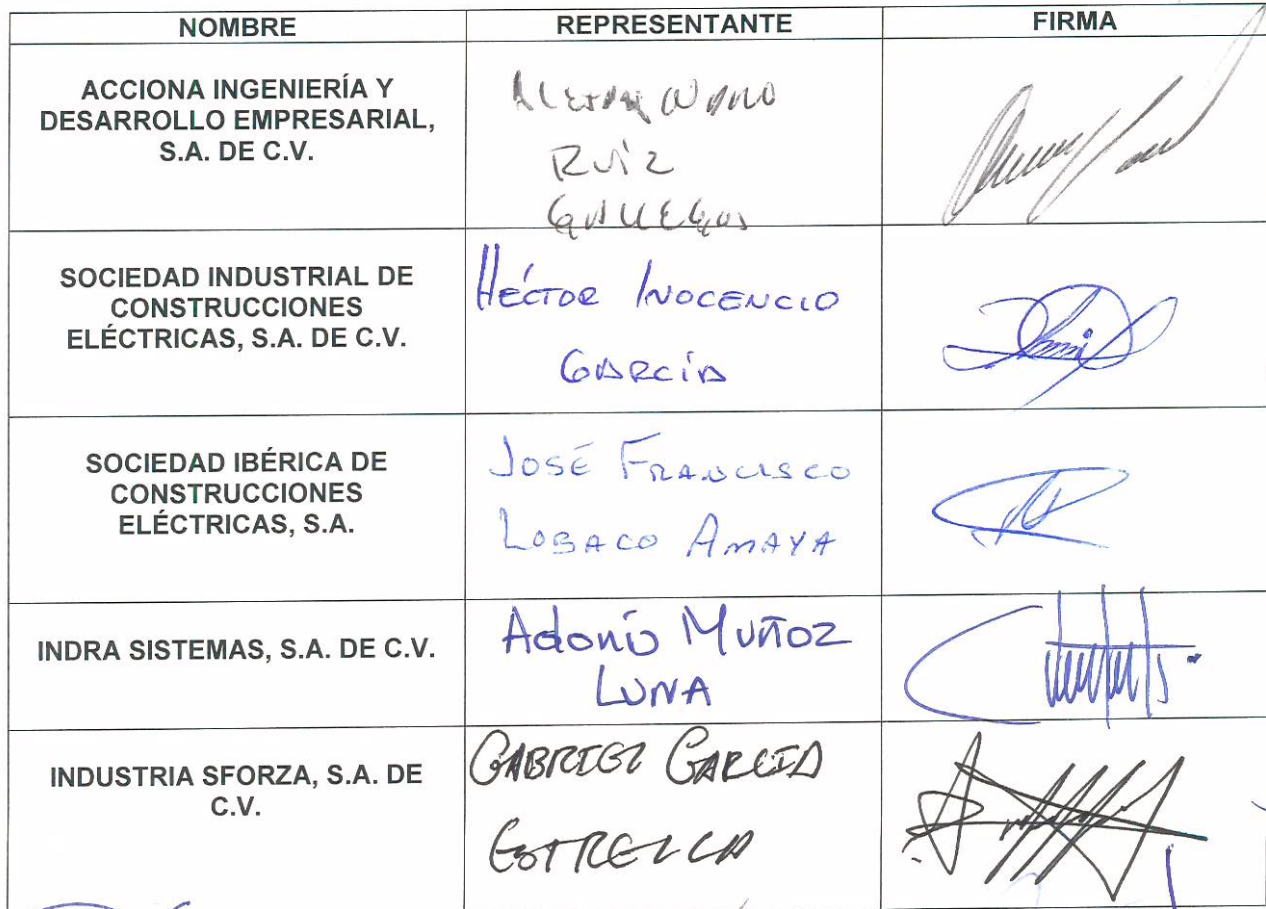 NOMBRE REPRESENTANTE FIRMA
ACCIONA INGENIERÍA Y
DESARROLLO EMPRESARIAL,
S.A. DE C.V.
RUÍZ
GALLEGOS
SOCIEDAD INDUSTRIAL DE
CONSTRUCCIONES
ELÉCTRICAS, S.A. DE C.V.
HÉCTOR INOCENCIO
GARCÍA
SOCIEDAD IBÉRICA DE
CONSTRUCCIONES
ELÉCTRICAS, S.A.
JOSÉ FRANCISCO
LOBACO AMAYA
INDRA SISTEMAS, S.A. DE C.V.
Adonis MUÑOZ
LUNA
INDUSTRIA SFORZA, S.A. DE
C.V.
GABRIEL GARCIA
ESTRELLA